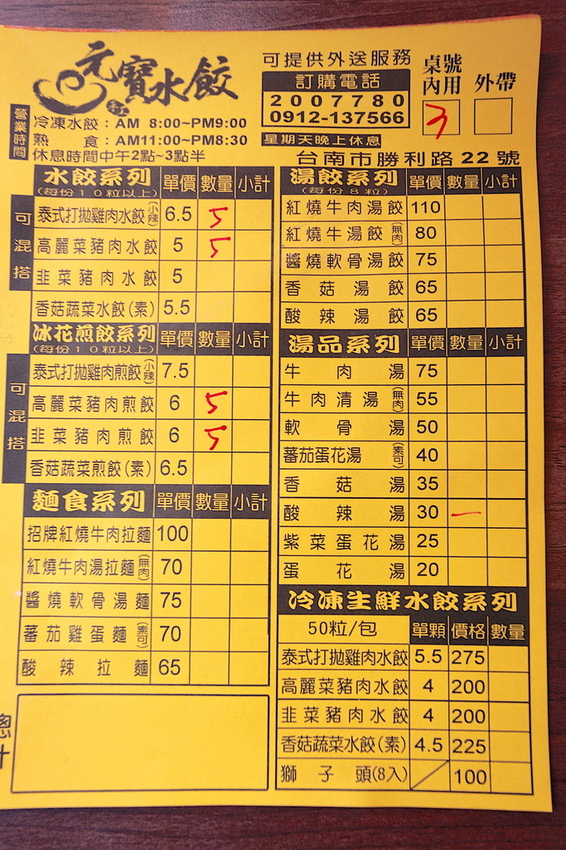 元寶水餃
可提供外送服務
訂購電話
2007780
0912-137566
星期天晚上休息
桌號
內用 外帶
3
營業時間
冷凍水餃：AM 8:00~PM9:00
熟 食：AM11:00~PM8:30
休息時間中午2點~3點半
台南市勝利路22號
水餃系列 單價 數量 小計
(每份10粒以上)
可混搭
泰式打拋雞肉水餃(小辣) 6.5 5
高麗菜豬肉水餃 5 5
韭菜豬肉水餃 5
香菇蔬菜水餃(素) 5.5
冰花煎餃系列 單價 數量 小計
(每份10粒以上)
可混搭
泰式打拋雞肉煎餃(小辣) 7.5
高麗菜豬肉煎餃 6 5
韭菜豬肉煎餃 6 5
香菇蔬菜煎餃(素) 6.5
麵食系列 單價 數量 小計
招牌紅燒牛肉拉麵 100
紅燒牛肉湯拉麵(無肉) 70
醬燒軟骨湯麵 75
蕃茄雞蛋麵(素可) 70
酸辣拉麵 65
總計
湯餃系列 單價 數量 小計
(每份8粒)
紅燒牛肉湯餃 110
紅燒牛湯餃(無肉) 80
醬燒軟骨湯餃 75
香菇湯餃 65
酸辣湯餃 65
湯品系列 單價 數量 小計
牛肉湯 75
牛肉清湯(無肉) 55
軟骨湯 50
蕃茄蛋花湯(素可) 40
香菇湯 35
酸辣湯 30 一
紫菜蛋花湯 25
蛋花湯 20
冷凍生鮮水餃系列
50粒/包 單顆 價格 數量
泰式打拋雞肉水餃 5.5 275
高麗菜豬肉水餃 4 200
韭菜豬肉水餃 4 200
香菇蔬菜水餃(素) 4.5 225
獅子頭(8入) 100